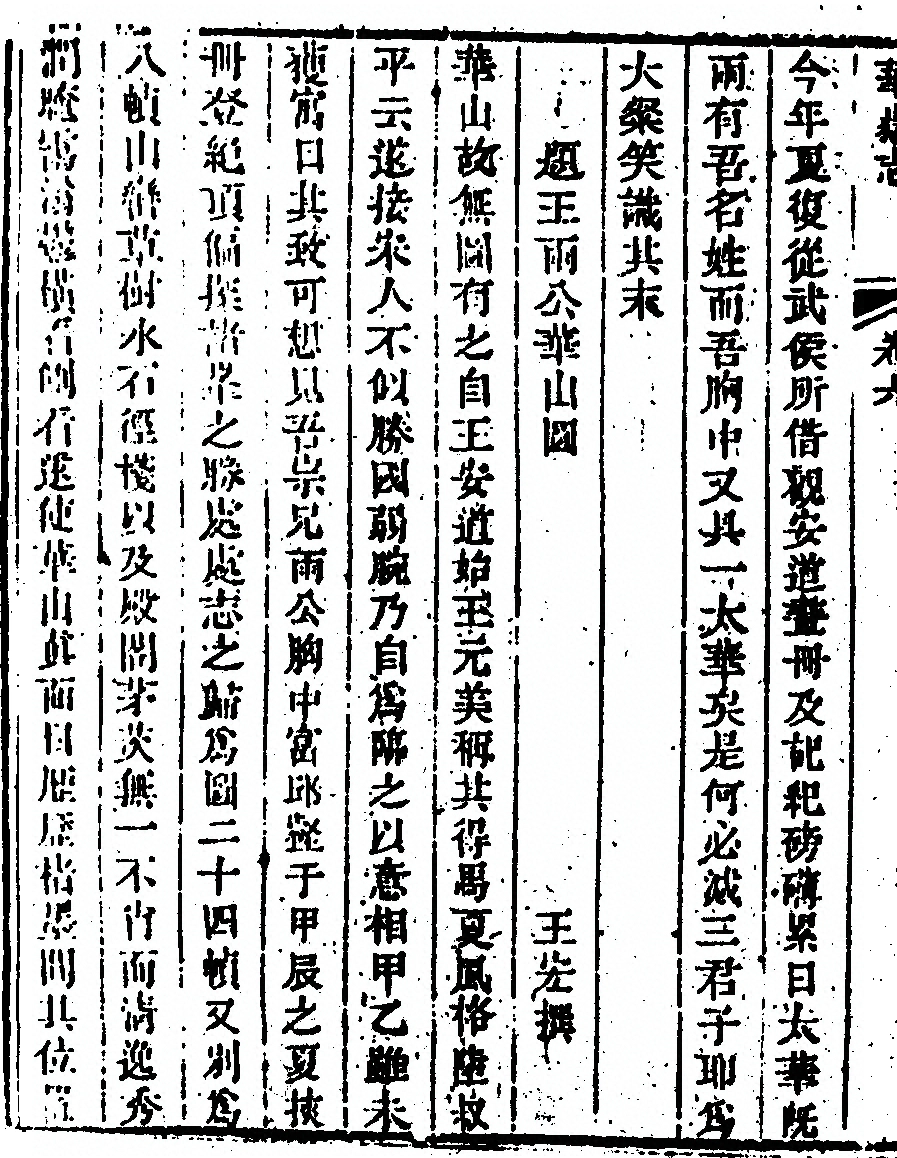 華嶽志 卷六
今年夏復從武侯所借觀安道畫冊及記祀磅礴累日太華既
雨有吾名姓而吾胸中又具一太華矣是何必減三君子耶為
大粲笑識其末
題王雨公華山圖 王宏撰
華山故無圖有之自王安道始王元美稱其得馬夏風格陸叔
平云遂接宋人不似勝國弱腕乃自為臨之以意相甲乙雖未
獲寓目其致可想見吾宗兄雨公胸中富邱壑于甲辰之夏挾
冊登絕頂偏探諸峯之勝處處志之歸為圖二十四幀又別為
八幀山巒草樹水石徑棧以及殿閣茅茨無一不肖而清逸秀
潤 使華山真面目歷歷 楮墨間其位置